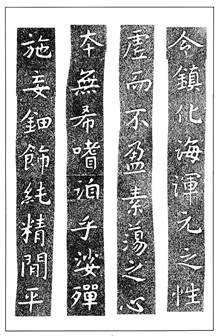 令鎮化海渾元之性
虛而不盈素蕩之心
夲無希嗜洎乎娑殫
施妄鈿飾純精閒平